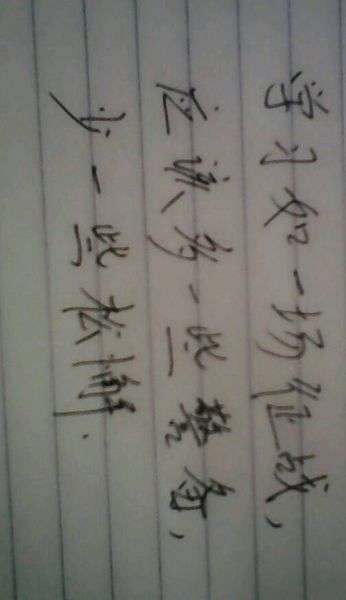 学习如一场征战，
应该多一些警备，
少一些松懈．